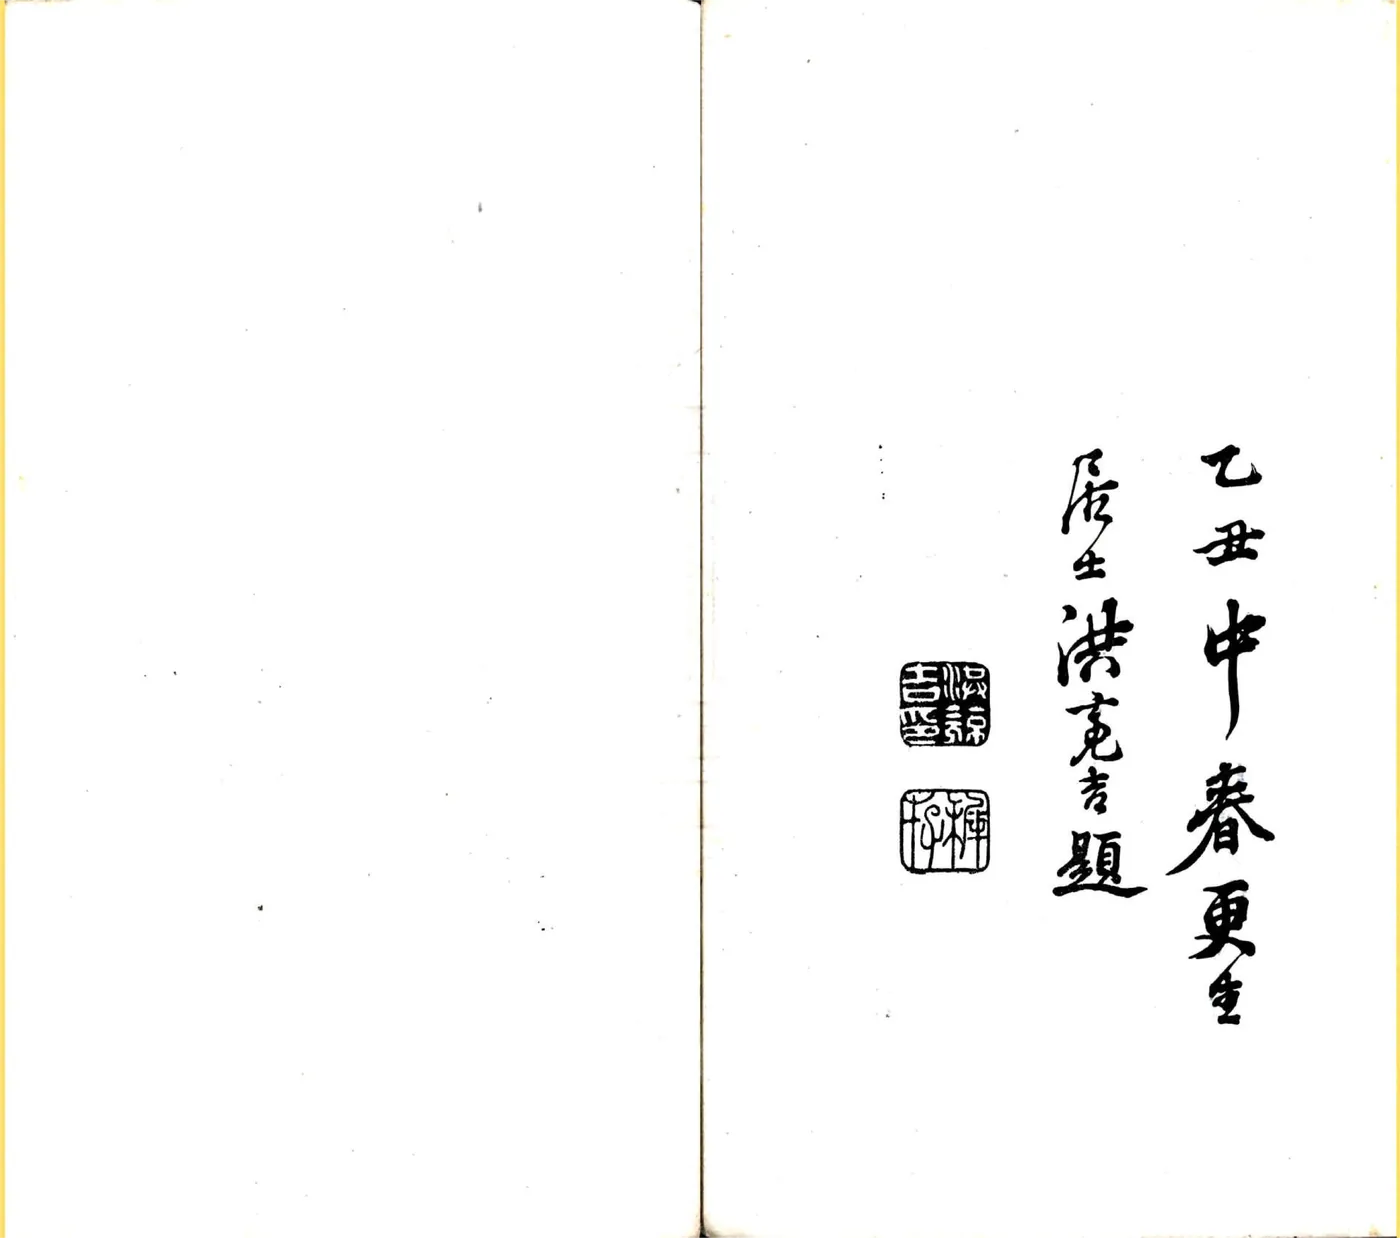 乙丑中春更生
居士洪亮吉題
洪諒吉印
稚存